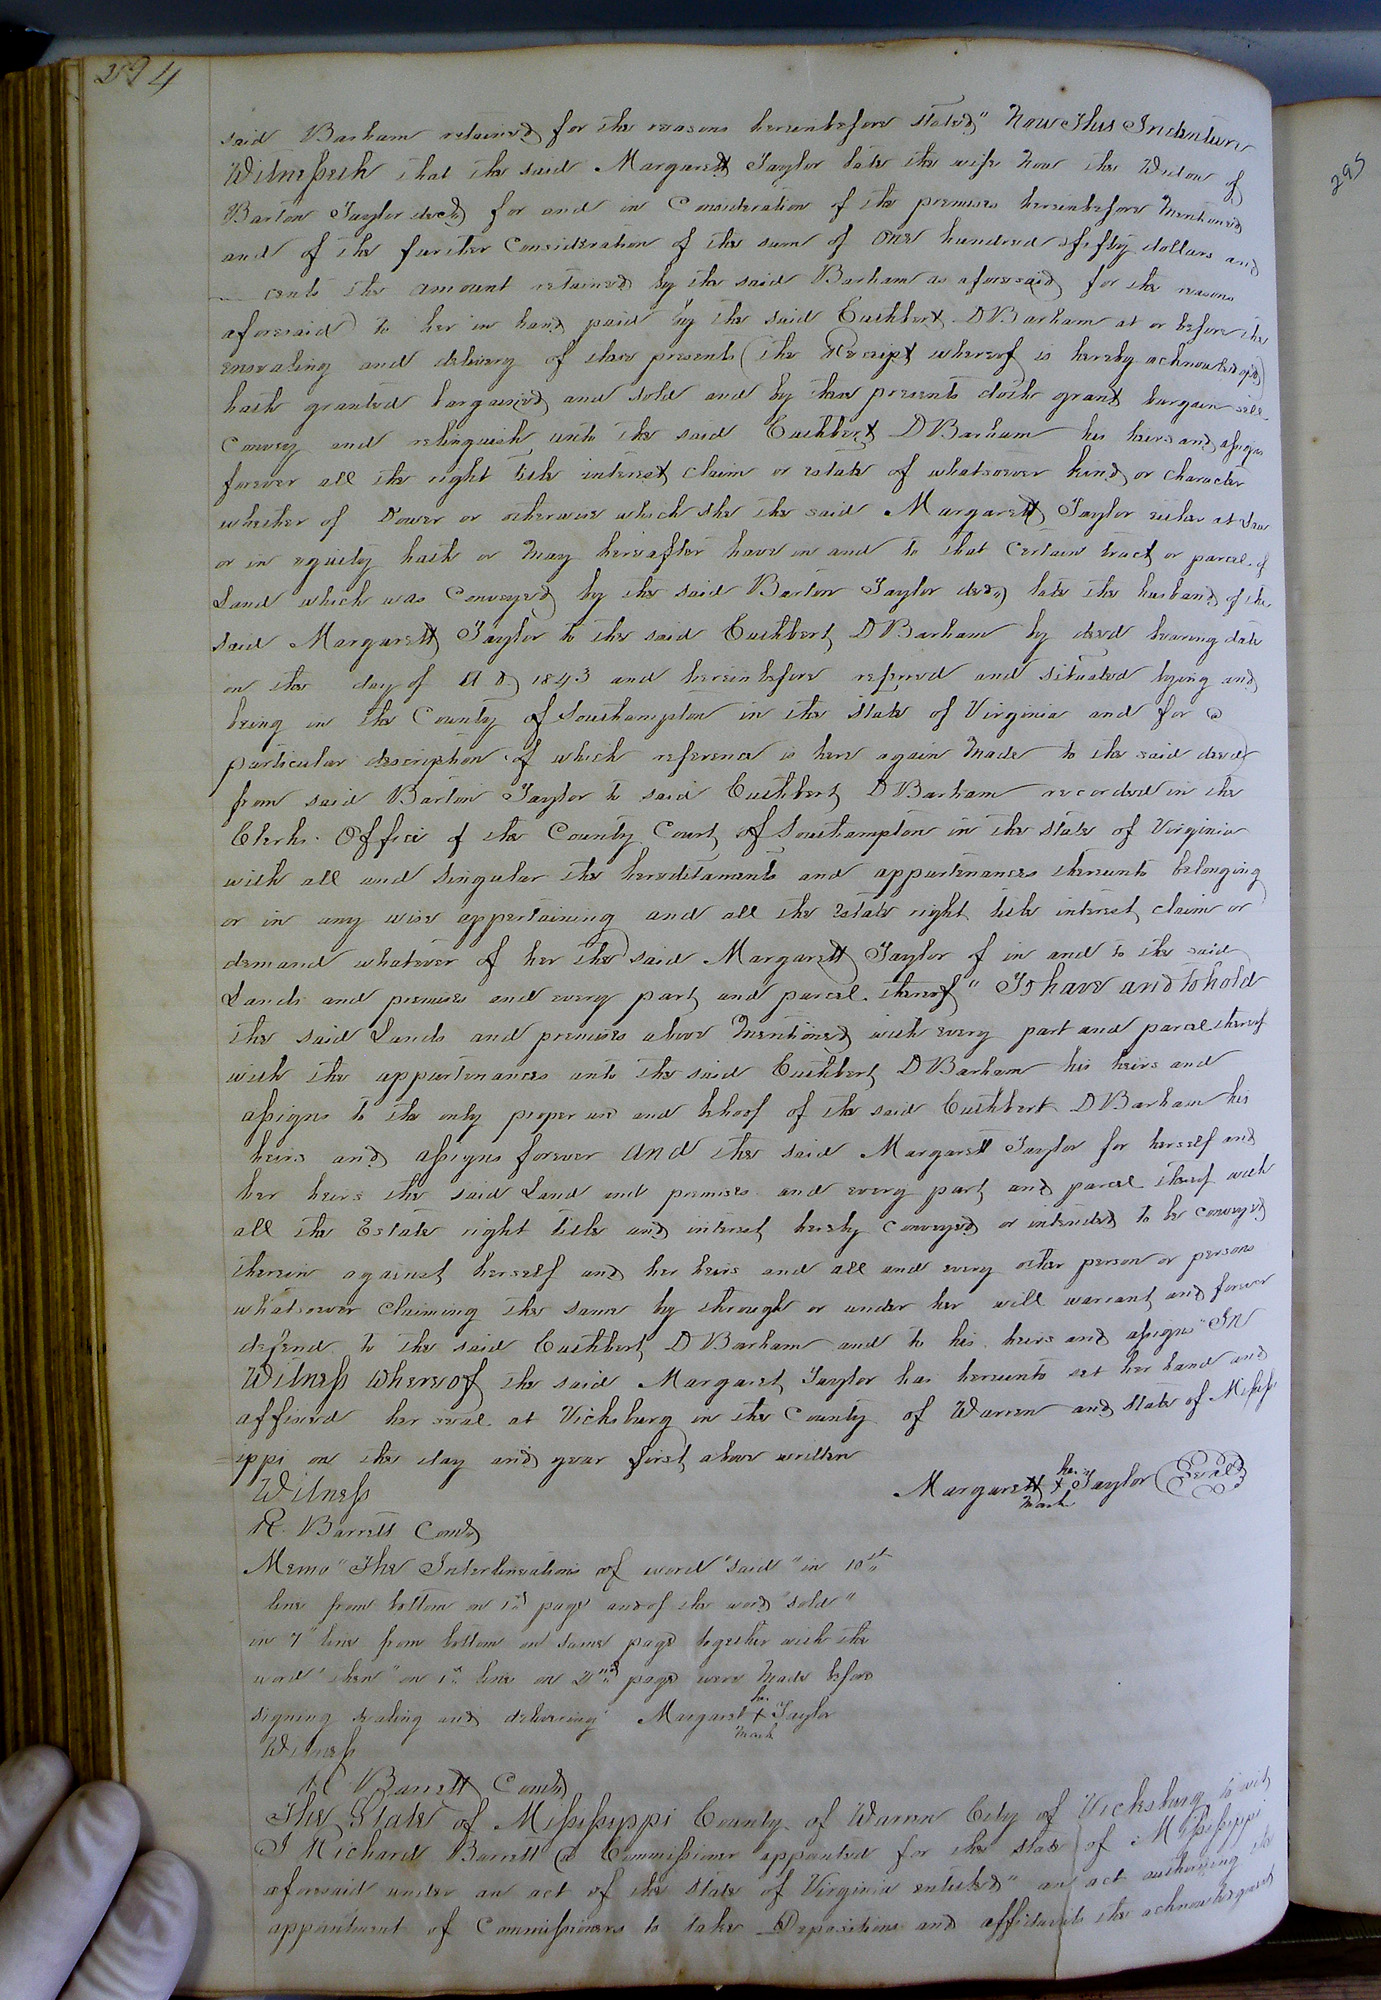 294
said Barham retained for the reasons hereinbefore stated" Now This Indenture
Witnesseth that the said Margarett Taylor late the wife Now the Widow of
Barton Taylor decd for and in Consideration of the premises hereinbefore Mentioned
and of the further Consideration of the sum of One hundred & fifty dollars and
— cents the amount retained by the said Barham as aforesaid for the reasons
aforesaid to her in hand paid by the said Cuthbert D Barham at or before the
ensealing and delivery of these presents (the Receipt whereof is hereby acknowledged)
hath granted bargained and sold and by these presents doth grant bargain sell
Convey and relinquish unto the said Cuthbert D Barham his heirs and assigns
forever all the right title interest claim or estate of whatsoever kind or character
whether of Dower or otherwise which she the said Margarett Taylor either at Law
or in equity hath or May hereafter have in and to that Certain tract or parcel of
Land which was Conveyed by the said Barton Taylor decd late the husband of the
said Margarett Taylor to the said Cuthbert D Barham by deed bearing date
on the day of A D 1843 and hereinbefore referred and situated lying and
being in the County of Southampton in the State of Virginia and for a
particular description of which reference is here again Made to the said deed
from said Barton Taylor to said Cuthbert D Barham recorded in the
Clerks Office of the County Court of Southampton in the State of Virginia
with all and singular the hereditaments and appurtenances thereunto belonging
or in any wise appertaining and all the Estate right title interest claim or
demand whatever of her the said Margarett Taylor of in and to the said
Lands and premises and every part and parcel thereof" To have and to hold
the said Lands and premises above Mentioned with every part and parcel thereof
with the appurtenances unto the said Cuthbert D Barham his heirs and
assigns to the only proper use and behoof of the said Cuthbert D Barham his
heirs and assigns forever And the said Margarett Taylor for herself and
her heirs the said Land and premises and every part and parcel thereof with
all the Estate right title and interest hereby Conveyed or intended to be conveyed
therein against herself and her heirs and all and every other person or persons
whatsoever claiming the same by through or under her will warrant and forever
defend to the said Cuthbert D Barham and to his heirs and assigns" In
Witness whereof the said Margaret Taylor has hereunto set her hand and
affixed her seal at Vicksburg in the County of Warren and State of Mississ
=ippi on the day and year first above written
Witness
Margarett her + mark Taylor (Seal)
R. Barrett Comd
Memo" The Interlineations of word "said" in 10th
line from bottom on 1st page and of the word "sold"
in 7" line from bottom on same page together with the
word "then" on 1st line on 2nd page were Made before
signing sealing and delivering Margaret her + mark Taylor
Witness
R Barrett Comd
The State of Mississippi County of Warren City of Vicksburg to wit
I Richard Barrett a Commissioner appointed for the State of Mississippi
aforesaid under an act of the State of Virginia entitled" an act authorizing the
appointment of Commissioners to take Depositions and affidavits the acknowledgment
295